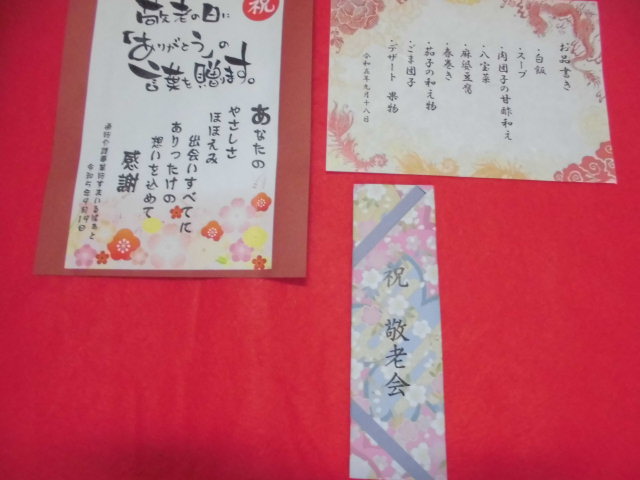 祝
敬老の日に
「ありがとう」の
言葉を贈ります。
あなたの
やさしさ
ほほえみ
出会いすべてに
ありったけの
想いを込めて
感謝
お品書き
・白飯
・スープ
・肉団子の甘酢和え
・八宝菜
・麻婆豆腐
・春巻き
・茄子の和え物
・ごま団子
・デザート 果物
令和五年九月十八日
祝 敬老会